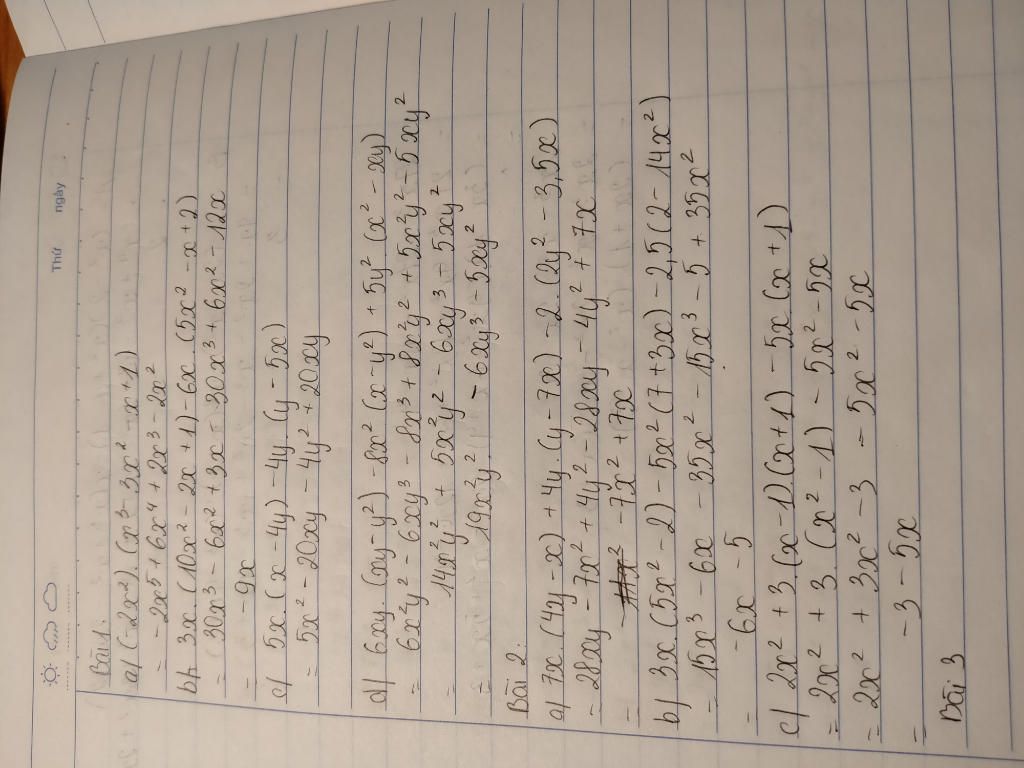 Thứ ngày
Bài 1:
a) (-2x²).(x³ - 3x² - x + 1)
= -2x⁵ + 6x⁴ + 2x³ - 2x²
b) 3x.(10x² - 2x + 1) - 6x.(5x² - x + 2)
= 30x³ - 6x² + 3x - 30x³ + 6x² - 12x
= - 9x
c) 5x.(x - 4y) - 4y.(y - 5x)
= 5x² - 20xy - 4y² + 20xy
d) 6xy.(xy - y²) - 8x²(x - y²) + 5y².(x² - xy)
= 6x²y² - 6xy³ - 8x³ + 8x²y² + 5x²y² - 5xy²
= 14x²y² + 5x²y² - 6xy³ - 5xy²
= 19x²y² - 6xy³ - 5xy²
Bài 2:
a) 7x.(4y - x) + 4y.(y - 7x) - 2.(2y² - 3,5x)
= 28xy - 7x² + 4y² - 28xy - 4y² + 7x
= -7x² + 7x
b) 3x.(5x² - 2) - 5x²(7 + 3x) - 2,5(2 - 14x²)
= 15x³ - 6x - 35x² - 15x³ - 5 + 35x²
= - 6x - 5
c) 2x² + 3.(x - 1)(x + 1) - 5x.(x + 1)
= 2x² + 3.(x² - 1) - 5x² - 5x
= 2x² + 3x² - 3 - 5x² - 5x
= - 3 - 5x
Bài 3